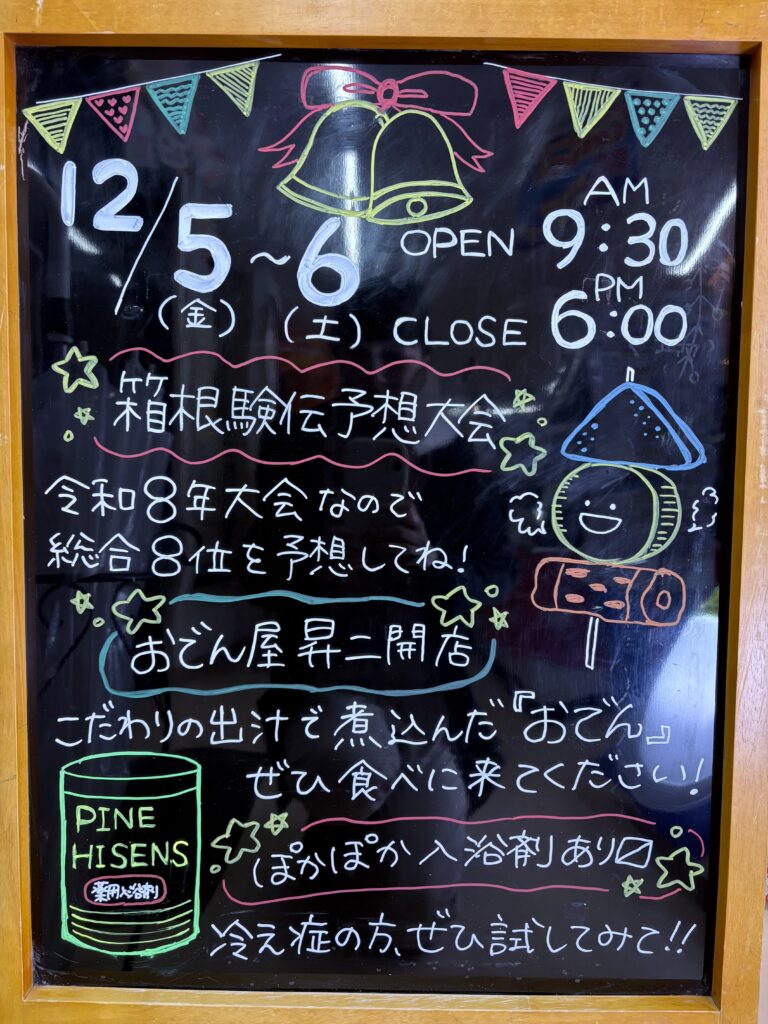 12/5~6
(金) (土)
OPEN AM 9:30
CLOSE PM 6:00
箱根験伝予想大会
令和8年大会なので
総合8位を予想してね!
おでん屋昇二開店
こだわりの出汁で煮込んだ『おでん』
ぜひ食べに来てください!
PINE
HISENS
薬用入浴剤
ぽかぽか入浴剤あり〼
冷え症の方、ぜひ試してみて!!